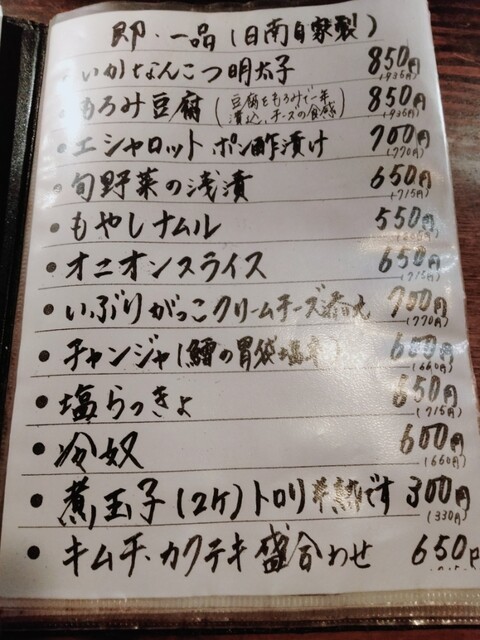 即・一品(日南自家製)
・いかなんこつ明太子 850円
(935円)
・もろみ豆腐(豆腐をもろみで一年漬込、チーズの食感) 850円
(935円)
・エシャロットポン酢漬け 700円
(770円)
・旬野菜の浅漬 650円
(715円)
・もやしナムル 550円
・オニオンスライス 650円
(715円)
・いぶりがっこクリームチーズ添え 700円
(770円)
・チャンジャ(鱈の胃袋塩辛) 600円
(660円)
・塩らっきょ 650円
(715円)
・冷奴 600円
(660円)
・煮玉子(2ケ)トロリ半熟です 300円
(330円)
・キムチ、カクテキ盛合わせ 650円